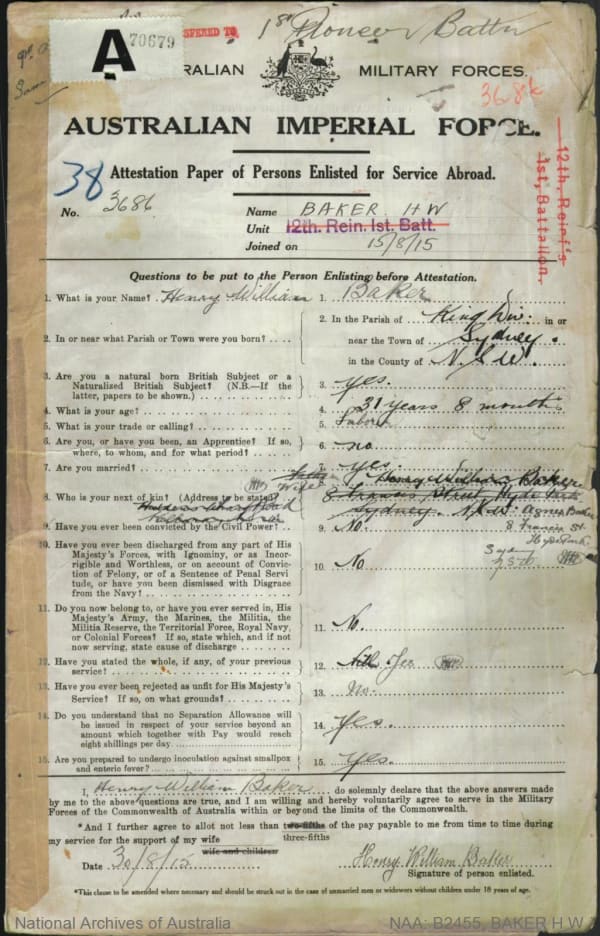 1st Pioneer Battn
A 70679
TRALIAN MILITARY FORCES.
3686
AUSTRALIAN IMPERIAL FORCE.
38 Attestation Paper of Persons Enlisted for Service Abroad.
12th, Reinf's
1st, Battalion,
No. 3686 Name BAKER H W
Unit 12th. Rein. 1st. Batt.
Joined on 15/8/15
Questions to be put to the Person Enlisting before Attestation.
1. What is your Name? Henry William 1. Baker
2. In or near what Parish or Town were you born? 2. In the Parish of King Div: in or
near the Town of Sydney.
in the County of N.S.W.
3. Are you a natural born British Subject or a
Naturalized British Subject? (N.B.—If the
latter, papers to be shown.) 3. yes.
4. What is your age? 4. 31 years 8 months
5. What is your trade or calling? 5. Labourer
6. Are you, or have you been, an Apprentice? If so,
where, to whom, and for what period? 6. no
7. Are you married? 7. yes
8. Who is your next of kin? (Address to be stated) Wife Henry William Baker
8 Francis Street Hyde Park
Sydney. N.S.W. Agnes Baker
8 Francis St.
Hyde Park
9. Have you ever been convicted by the Civil Power? 9. No.
10. Have you ever been discharged from any part of His
Majesty's Forces, with Ignominy, or as Incor-
rigible and Worthless, or on account of Convic-
tion of Felony, or of a Sentence of Penal Servi
tude, or have you been dismissed with Disgrace
from the Navy? 10. No
11. Do you now belong to, or have you ever served in, His
Majesty's Army, the Marines, the Militia, the
Militia Reserve, the Territorial Force, Royal Navy,
or Colonial Forces? If so, state which, and if not
now serving, state cause of discharge 11. No.
12. Have you stated the whole, if any, of your previous
service? 12. Yes
13. Have you ever been rejected as unfit for His Majesty's
Service? If so, on what grounds? 13. No.
14. Do you understand that no Separation Allowance will
be issued in respect of your service beyond an
amount which together with Pay would reach
eight shillings per day 14. Yes.
15. Are you prepared to undergo inoculation against smallpox
and enteric fever? 15. Yes.
I, Henry William Baker do solemnly declare that the above answers made
by me to the above questions are true, and I am willing and hereby voluntarily agree to serve in the Military
Forces of the Commonwealth of Australia within or beyond the limits of the Commonwealth.
*And I further agree to allot not less than two-fifths of the pay payable to me from time to time during
three-fifths
my service for the support of my wife
wife and children
Date 30/8/15 Henry William Baker
Signature of person enlisted.
*This clause to be amended where necessary and should be struck out in the case of unmarried men or widowers without children under 18 years of age.
National Archives of Australia NAA: B2455, BAKER H W